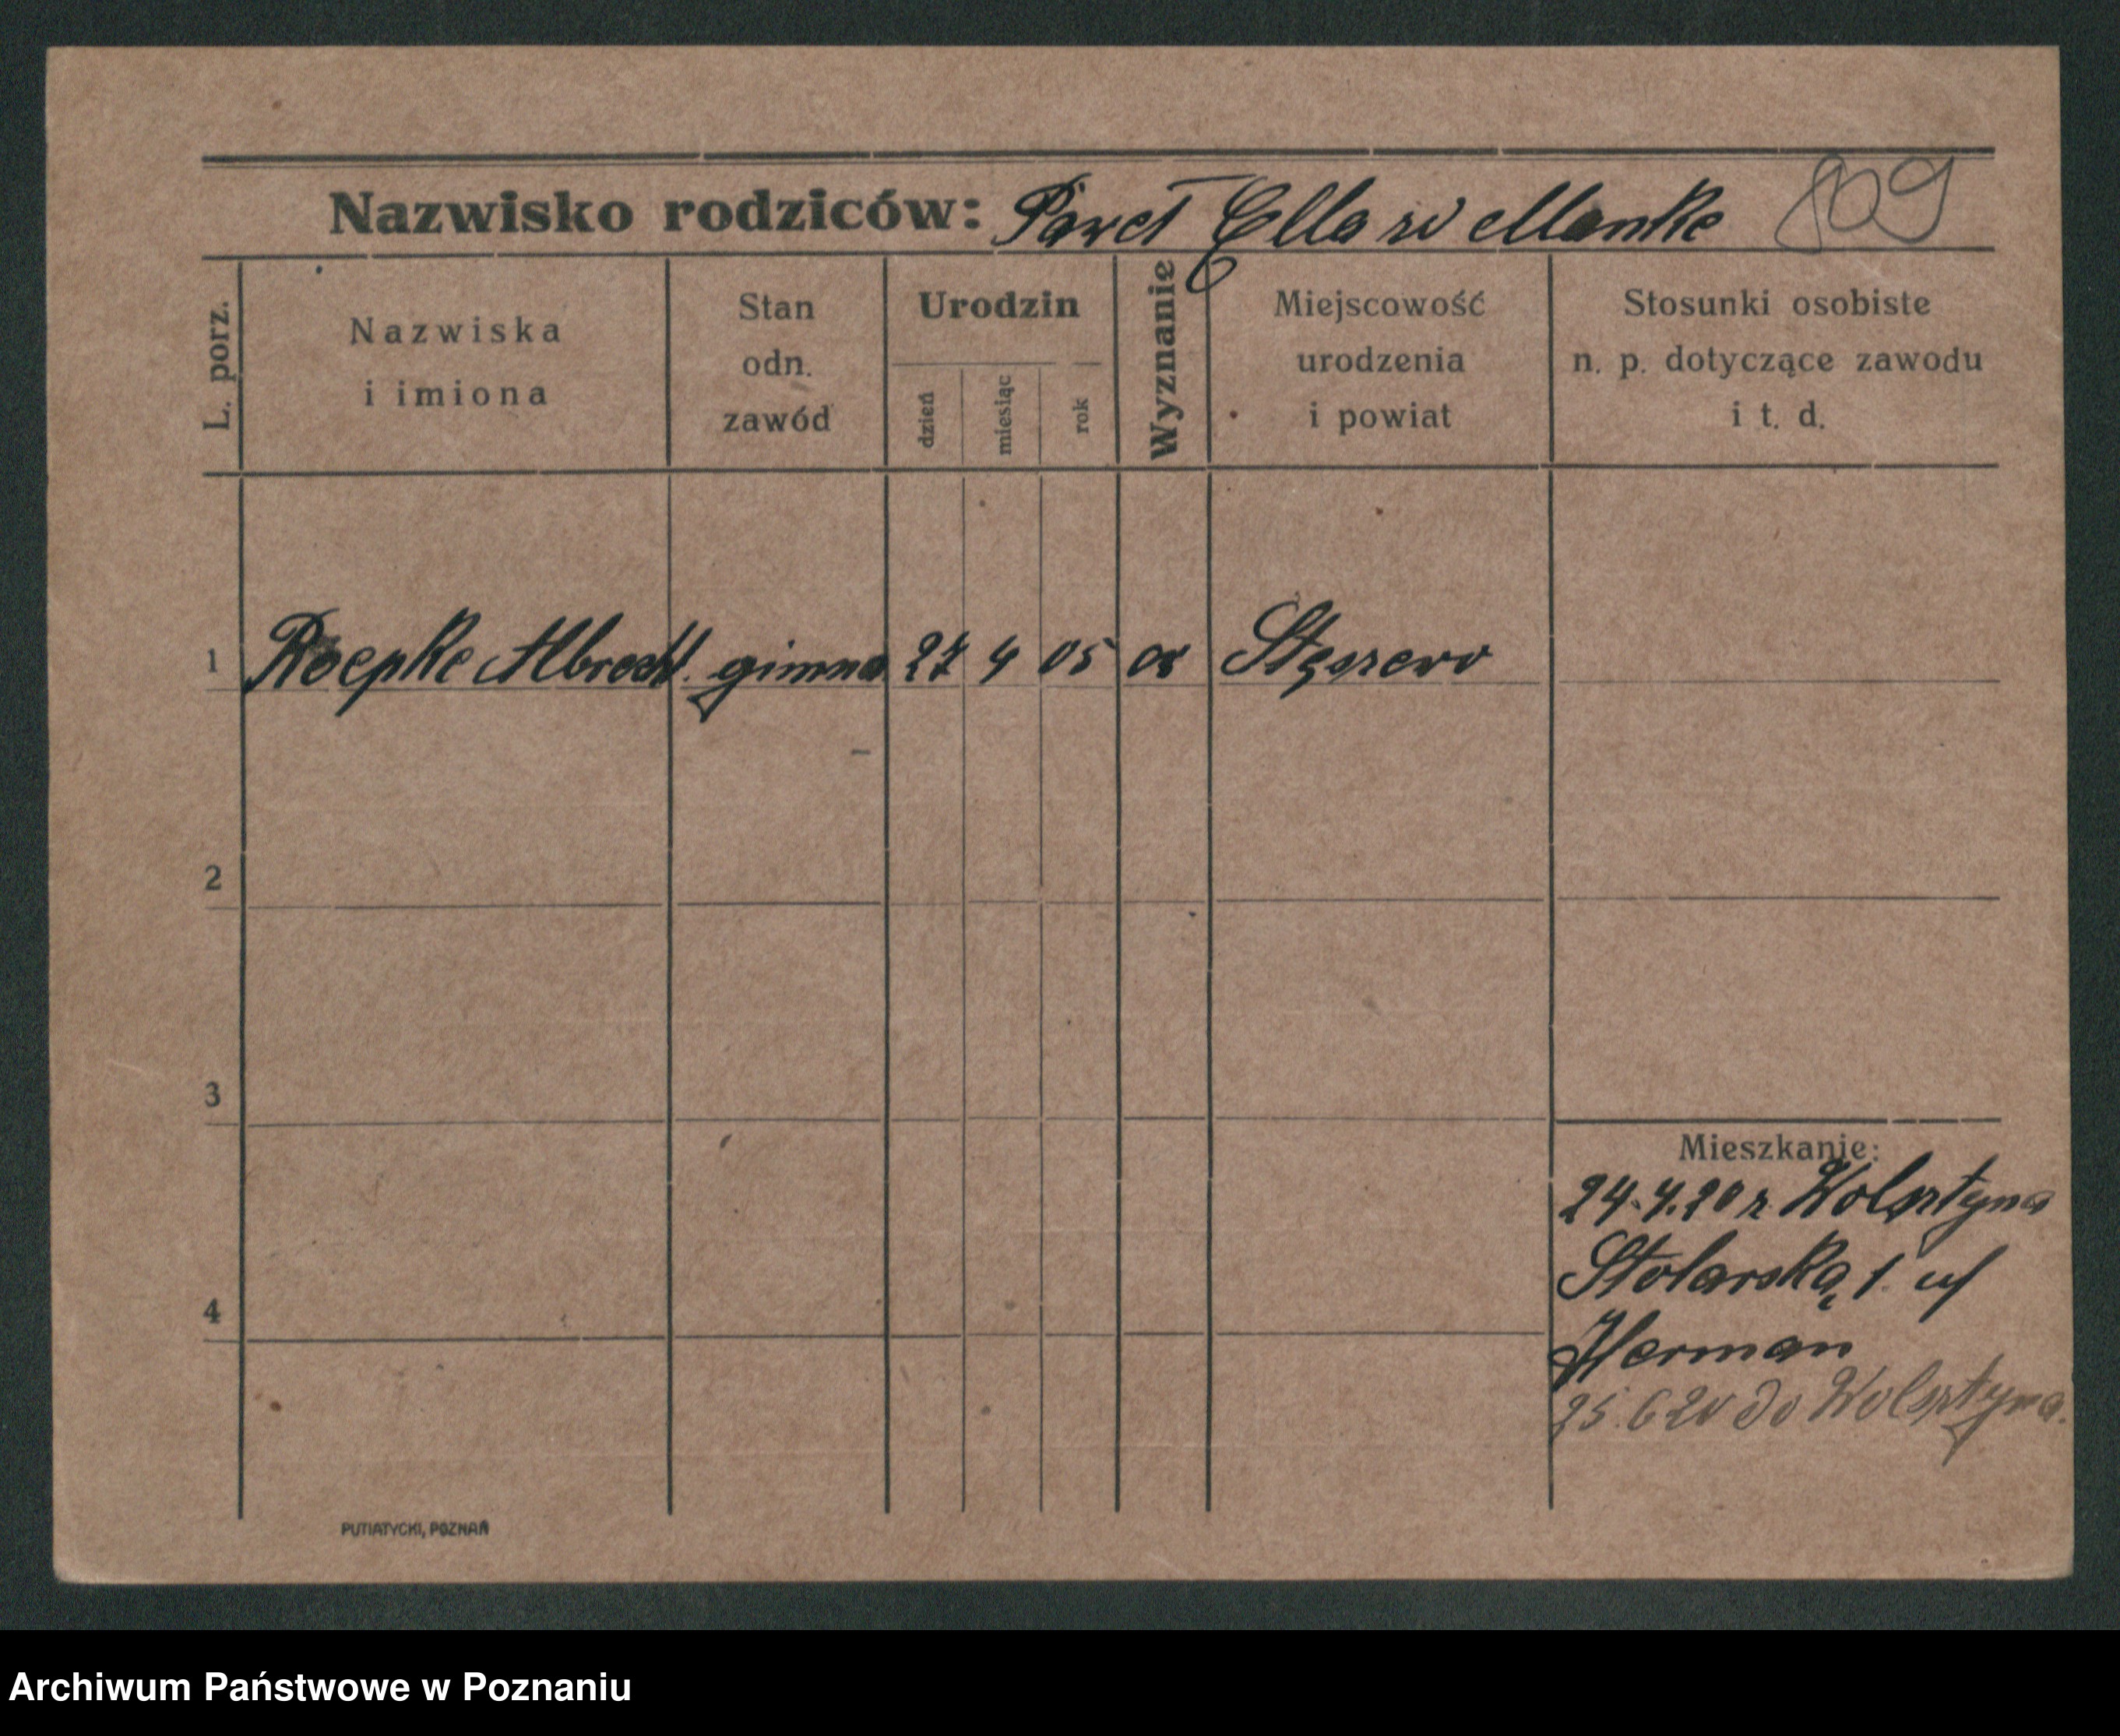 Nazwisko rodziców: Paweł Ella w Manke 809
L. porz.
Nazwiska
i imiona
Stan
odn.
zawód
Urodzin
dzień
miesiąc
rok
Wyznanie
Miejscowość
urodzenia
i powiat
Stosunki osobiste
n. p. dotyczące zawodu
i t. d.
1 Roepke Albrecht. gimna 27 4 05 Stęszewo
2
3
4
Mieszkanie:
24.4.20 z Wolsztyna
Stolarska, 1.
Herman
25.6 20 do Wolsztyna.
PUTIATYCKI, POZNAŃ
Archiwum Państwowe w Poznaniu